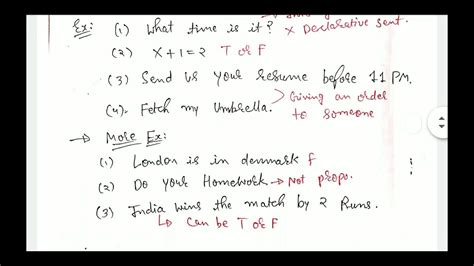 Ex: (1) What time is it? × Declarative sent.
(2) x+1=2 T or F
(3) Send us your resume before 11 PM.
(4). Fetch my Umbrella. > Giving an order
to someone
→ More Ex:
(1) London is in denmark F
(2) Do your Homework → Not propo.
(3) India wins the match by 2 Runs.
↳ Can be T or F